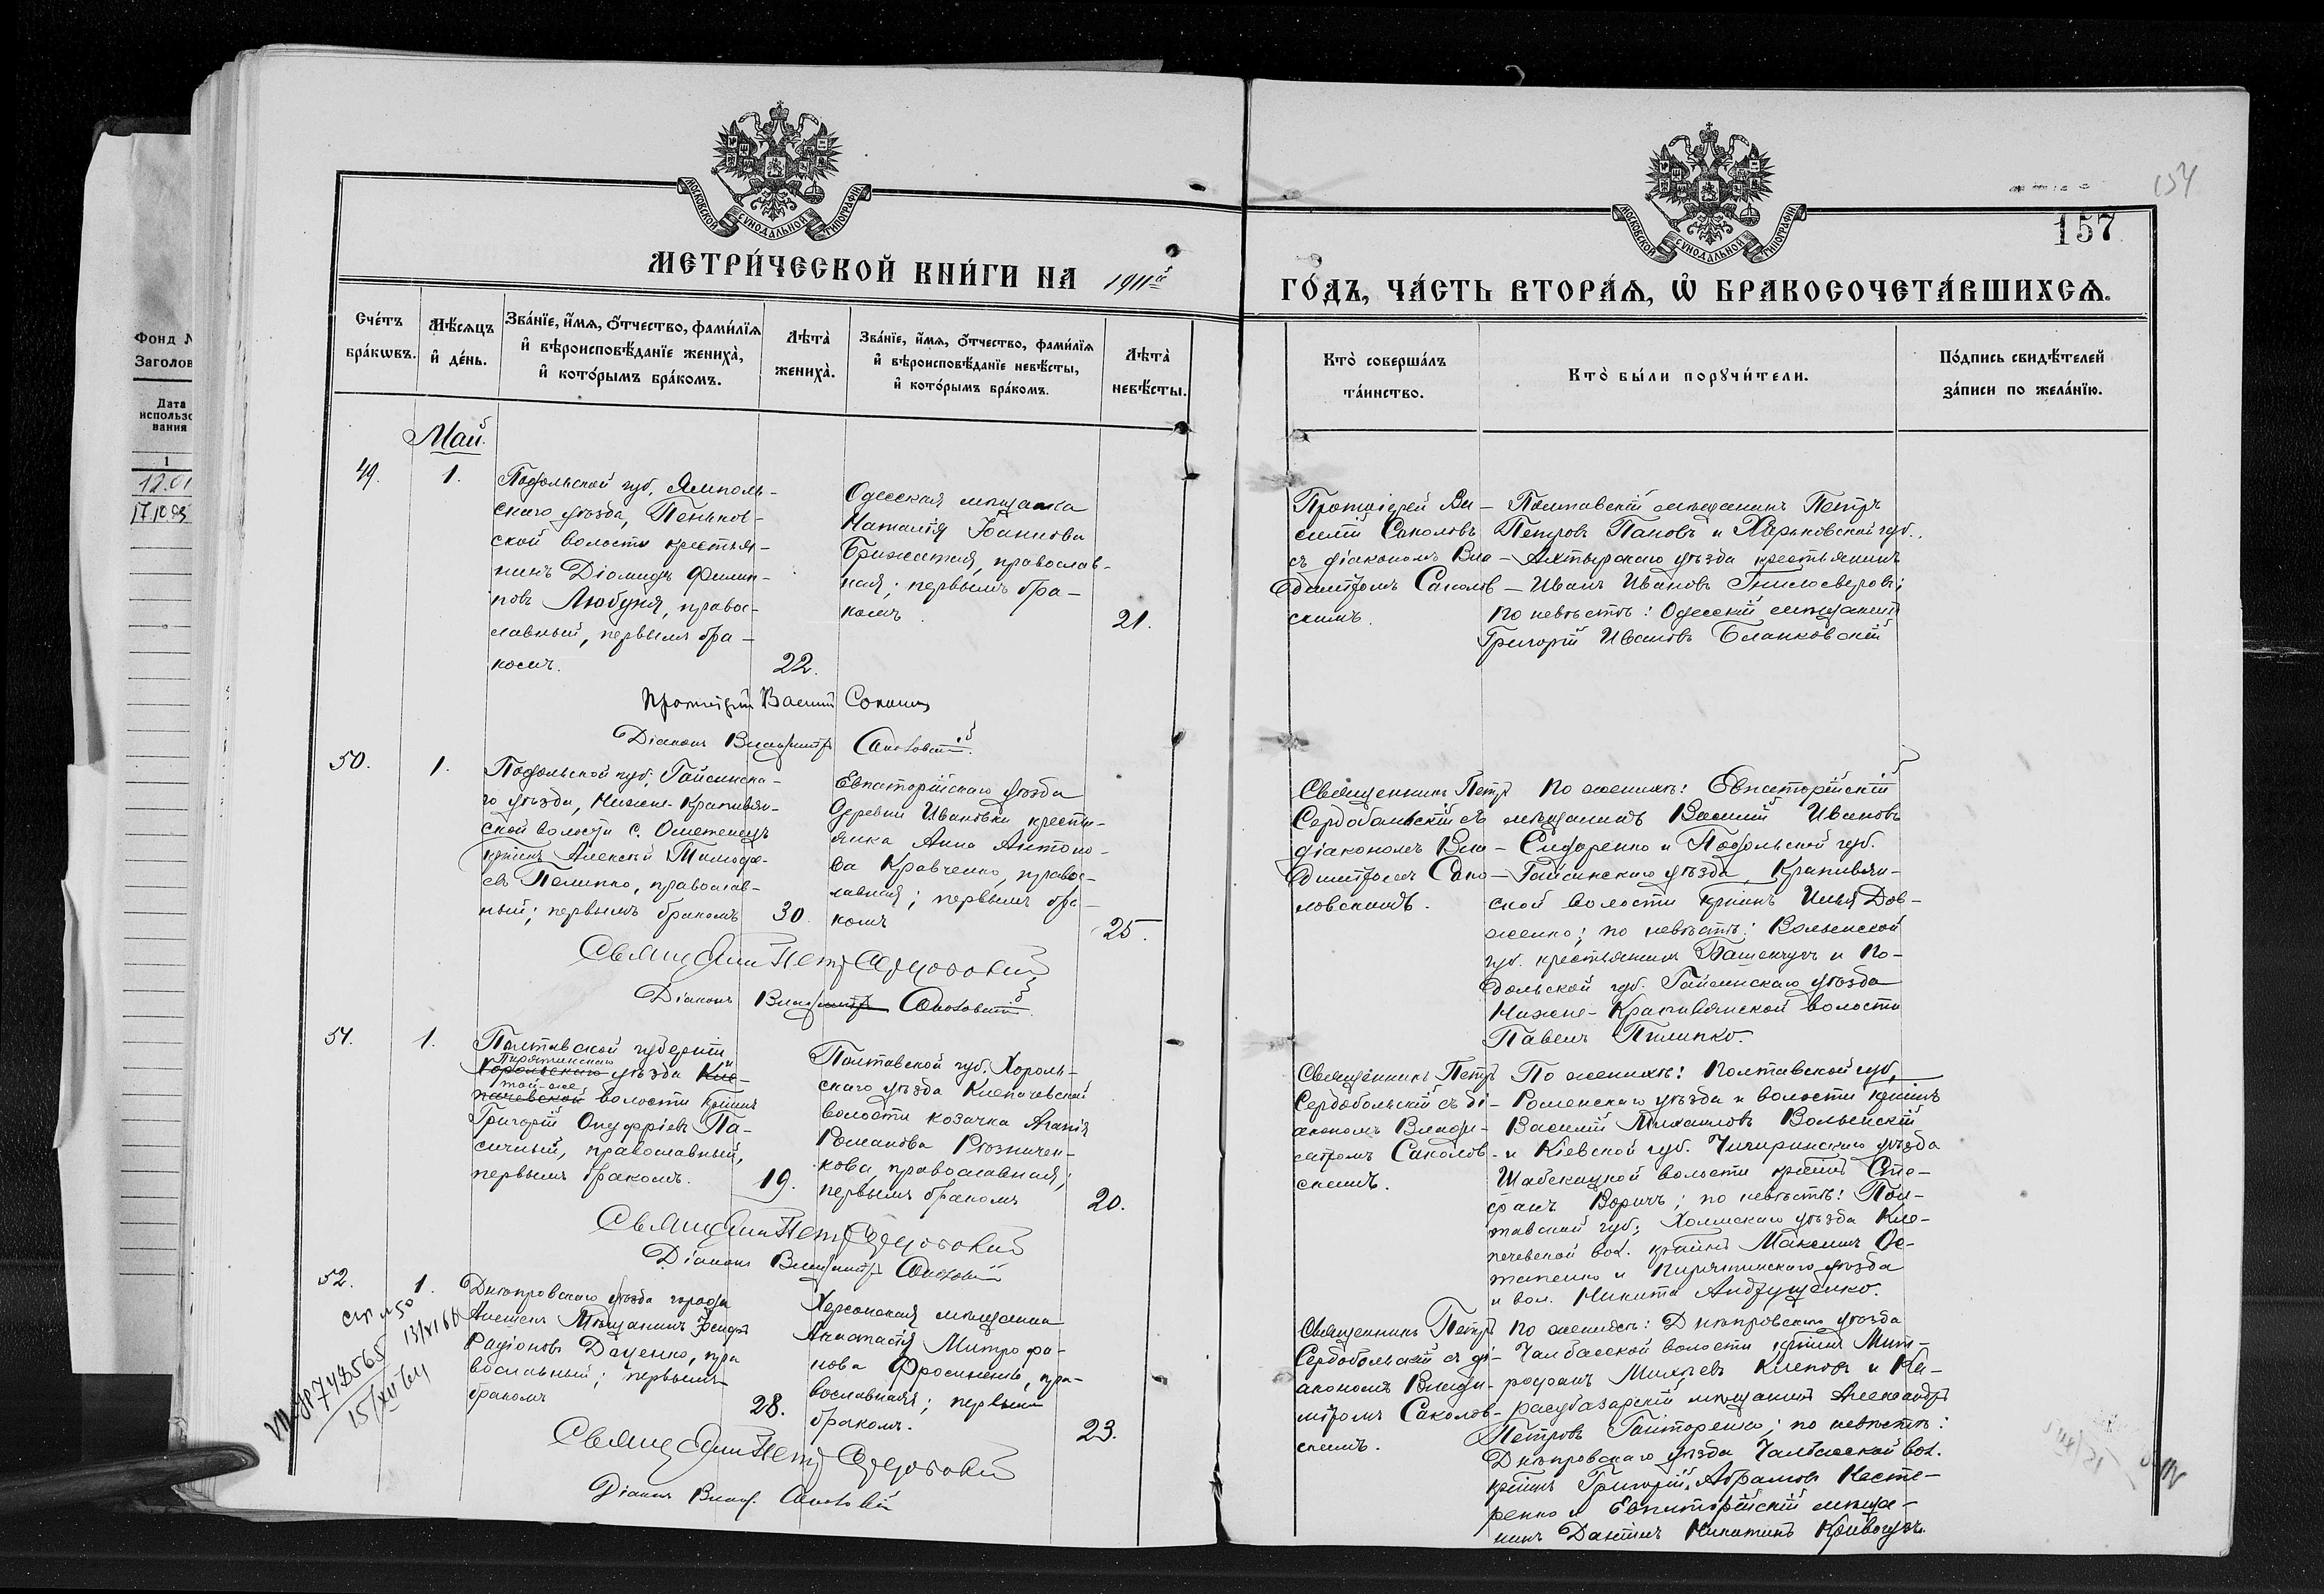 154
157
МОСКОВСКОЙ СѴНОДАЛЬНОЙ ТИПОГРАФІИ
МОСКОВСКОЙ СѴНОДАЛЬНОЙ ТИПОГРАФІИ
МЕТРИ́ЧЕСКОЙ КНИ́ГИ НА 1911й
ГО́ДЪ, ЧА́СТЬ ВТОРА́Ѧ, Ѡ БРАКОСОЧЕТА́ВШИХСѦ.
Сче́тъ бра́кѡвъ.
Мѣ́сѧцъ и҆ де́нь.
Зва́нїе, и҆́мѧ, ѻ҆́тчество, фами́лїѧ
и҆ вѣроисповѣ́данїе жениха̀,
и҆ кото́рымъ бра́комъ.
Лѣ́та̀ жениха̀.
Зва́нїе, и҆́мѧ, ѻ҆́тчество, фами́лїѧ
и҆ вѣроисповѣ́данїе невѣ́сты,
и҆ кото́рымъ бра́комъ.
Лѣ́та̀ невѣ́сты.
Кто̀ соверша́лъ
та́инство.
Кто̀ бы́ли порꙋчи́тели.
По́дпись свидѣ́телей
за́писи по жела́нїю.
Фонд
Заголов
Дата
использо
вания
1
12.01
Май.
49.
1.
Подольской губ. Ямполь-
скаго уѣзда, Пеньков-
ской волости крестья-
нинъ Діомидъ Филип-
повъ Любуня, право-
славный, первымъ бра-
комъ.
22.
Одесская мѣщанка
Наталія Іоаннова
Брижатая, православ-
ная; первымъ бра-
комъ
21.
Протоіерей Ва-
силій Соколовъ
съ діакономъ Вла-
диміромъ Саколов-
скимъ.
Полтавскій мѣщанинъ Петръ
Петровъ Пановъ и Харьковской губ.
Ахтырскаго уѣзда крестьянинъ
Иванъ Ивановъ Гнилосыровъ;
по невѣстѣ: Одесскій мѣщанинъ
Григорій Ивановъ Бланковскій
Протоіерей Василій Соколовъ
Діаконъ Владиміръ Саколовскій.
50.
1.
Подольской губ. Гайсинска-
го уѣзда, Нижне-Крапивян-
ской волости с.
кр-нинъ Алексѣй Тимофе-
евъ Пилипко, православ-
ный; первымъ бракомъ
30.
Евпаторійскаго уѣзда
деревни Ивановки кресть-
янка Анна Антоно-
ва Кравченко, право-
славная; первымъ бра-
комъ
25.
Священникъ Петръ
Сердобольскій съ
діакономъ Вла-
диміромъ Сако-
ловскимъ.
По женихѣ: Евпаторійскій
мѣщанинъ Василій Ивановъ
Сидоренко и Подольской губ.
Гайсинскаго уѣзда, Крапивян-
ской волости кр-нинъ Илья Дов-
женко; по невѣстѣ: Волынской
губ. крестьянинъ и По-
дольской губ. Гайсинскаго уѣзда
Нижне-Крапивянской волости
Павелъ Пилипко.
Священникъ Петръ Сердобольскій
Діаконъ Владиміръ Саколовскій.
51.
1.
Полтавской губерніи
Пирятинскаго
Хорольскаго уѣзда Кле-
той-же
пачевской волости кр-нинъ
Григорій Онуфріевъ Па-
сичный, православный,
первымъ бракомъ.
19.
Полтавской губ. Хороль-
скаго уѣзда Клепачевской
волости козачка Агапія
Романова Рѣзничен-
кова, православная;
первымъ бракомъ
20.
Священникъ Петръ
Сердобольскій съ ді-
акономъ Влади-
міромъ Саколов-
скимъ.
По женихѣ: Полтавской губ.
Роменскаго уѣзда и волости кр-нинъ
Василій Михаиловъ Волынскій
и Кіевской губ. Чигиринскаго уѣзда
волости кр-нинъ Сте-
фанъ Воричъ; по невѣстѣ: Пол-
тавской губ. уѣзда Кле-
пачевской вол. кр-нинъ Максимъ Ос-
тапенко и Пирятинскаго уѣзда
и вол. Никита Андрущенко.
Священникъ Петръ Сердобольскій
Діаконъ Владиміръ Саколовскій
52.
1.
Днѣпровскаго уѣзда города
Алешекъ Мѣщанинъ
Радіоновъ Даценко, пра
вославный; первымъ
бракомъ
28.
Херсонская мѣщанка
Анастасія Митрофа-
нова Фросиненко, пра-
вославная; первымъ
бракомъ.
23.
Священникъ Петръ
Сердобольскій съ ді-
акономъ Влади-
міромъ Саколов-
скимъ.
по женихѣ: Днѣпровскаго уѣзда
Чалбасской волости кр-нинъ Мит-
рофанъ и Ка-
расубазарскій мѣщанинъ Александръ
Петровъ; по невѣстѣ:
Днѣпровскаго уѣзда Чалбасской вол.
кр-нинъ Григорій Абрамовъ Несте-
ренко и Евпаторійскій мѣща-
нинъ Никитинъ
Священникъ Петръ Сердобольскій
Діаконъ Влад. Саколовскій
748565
15/XII 64